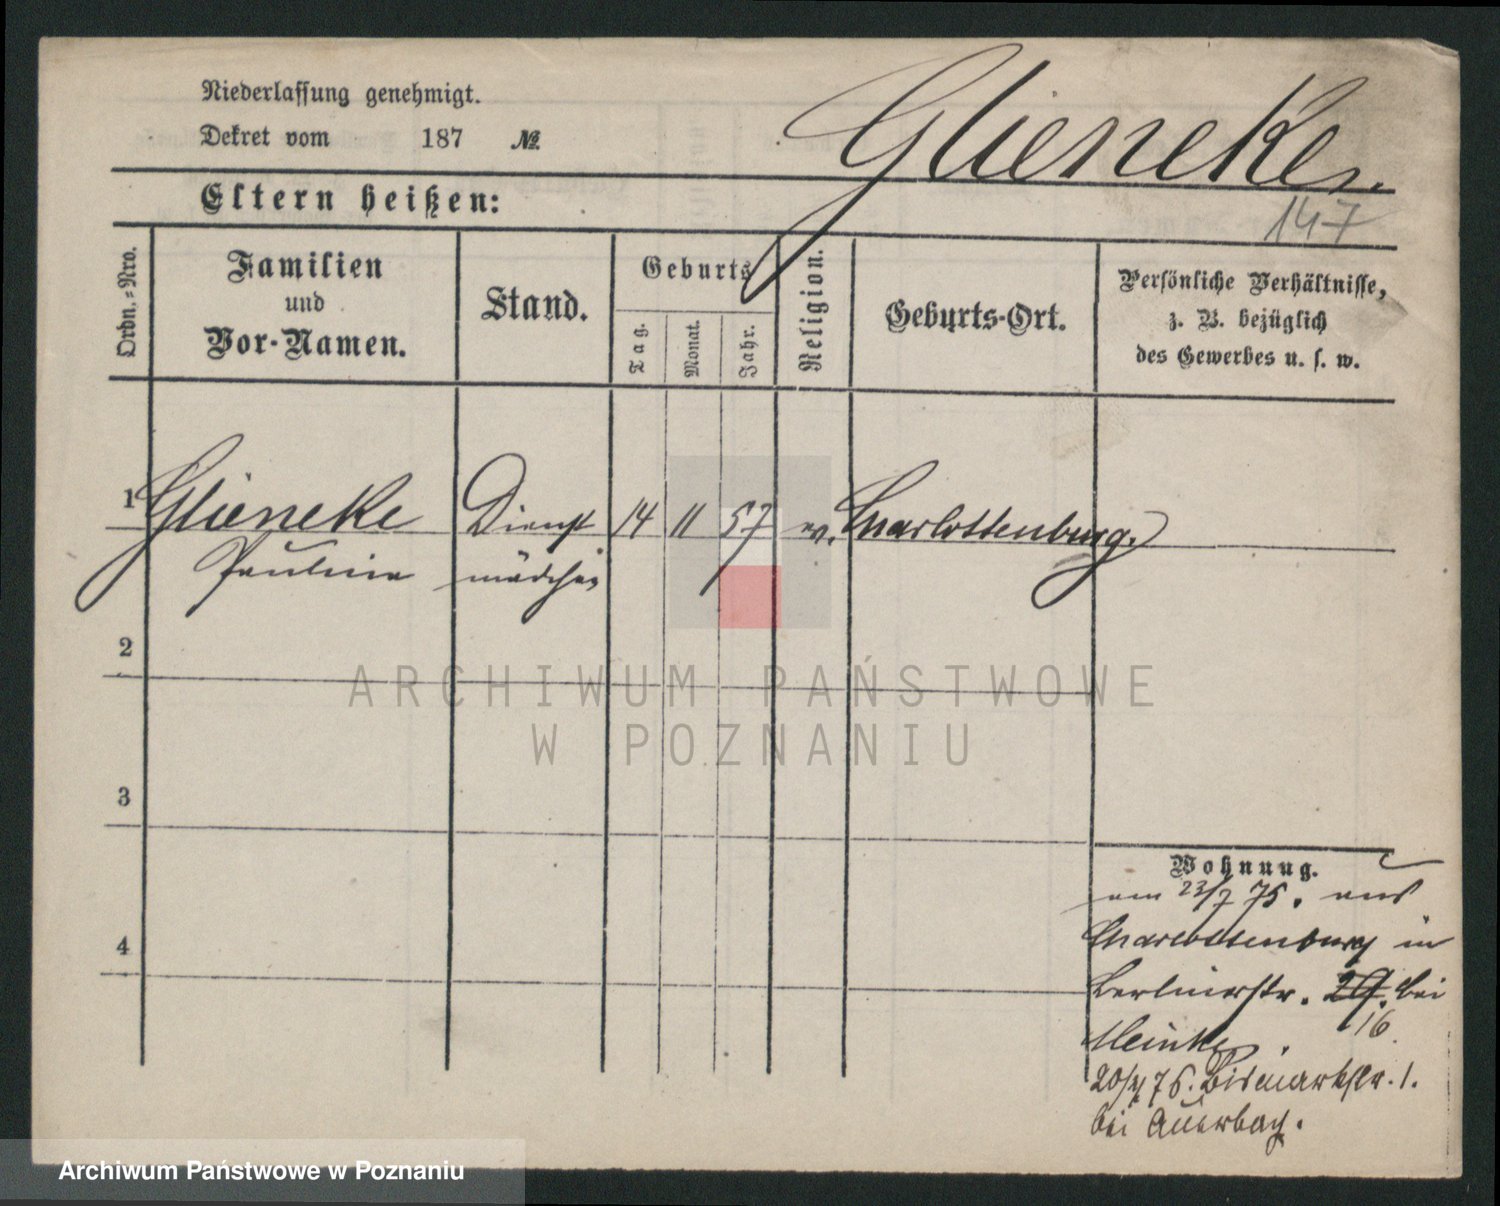 Niederlassung genehmigt.
Dekret vom 187 №
Glieneke.
147
Eltern heißen:
Ordn.-Nro.
Familien
und
Vor-Namen.
Stand.
Geburts
Tag.
Monat.
Jahr.
Religion.
Geburts-Ort.
Persönliche Verhältnisse,
z. B. bezüglich
des Gewerbes u. s. w.
1 Glieneke Dienst 14 11 57 ev. Charlottenburg.
Pauline mädchen
2
3
4
Wohnung.
am 23/7 75. aus
Charlottenburg in
Berlinerstr. 27. bei
16
Meinke.
20/4 76. Bismarkstr. 1.
bei Auerbach.
ARCHIWUM PAŃSTWOWE
W POZNANIU
Archiwum Państwowe w Poznaniu